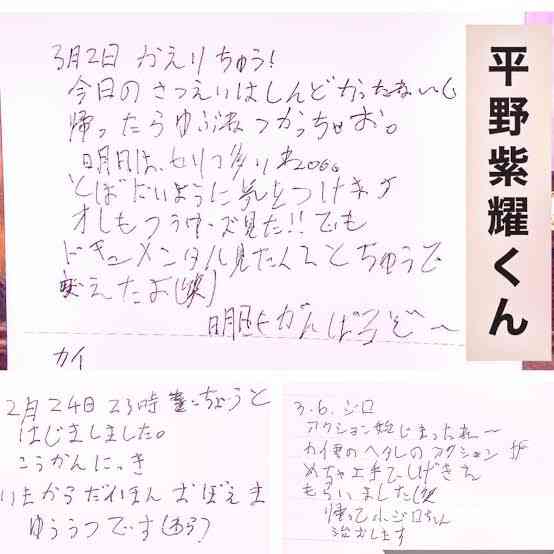 平野紫耀くん
3月2日 かえりちゅう!
今日のさつえいはしんどかったね
帰ったらゆぶねつかっちゃお。
明日は、セリフ多い
とばないように気をつけネバ
オレも 見た!!でも
ドキュメンタル見たくてとちゅうで
変えたよ(笑)
明日もがんばるぞ〜
カイ
2月24日 23時
はじましました。
こうかんにっき
いまからだいほん おぼえま
ゆううつです
3.6.ジロ
アクション始じまったね〜
カイ のヘタレのアクションが
めちゃ上手でしげきを
もらいました(笑
帰って小ジロちゃん
治おします